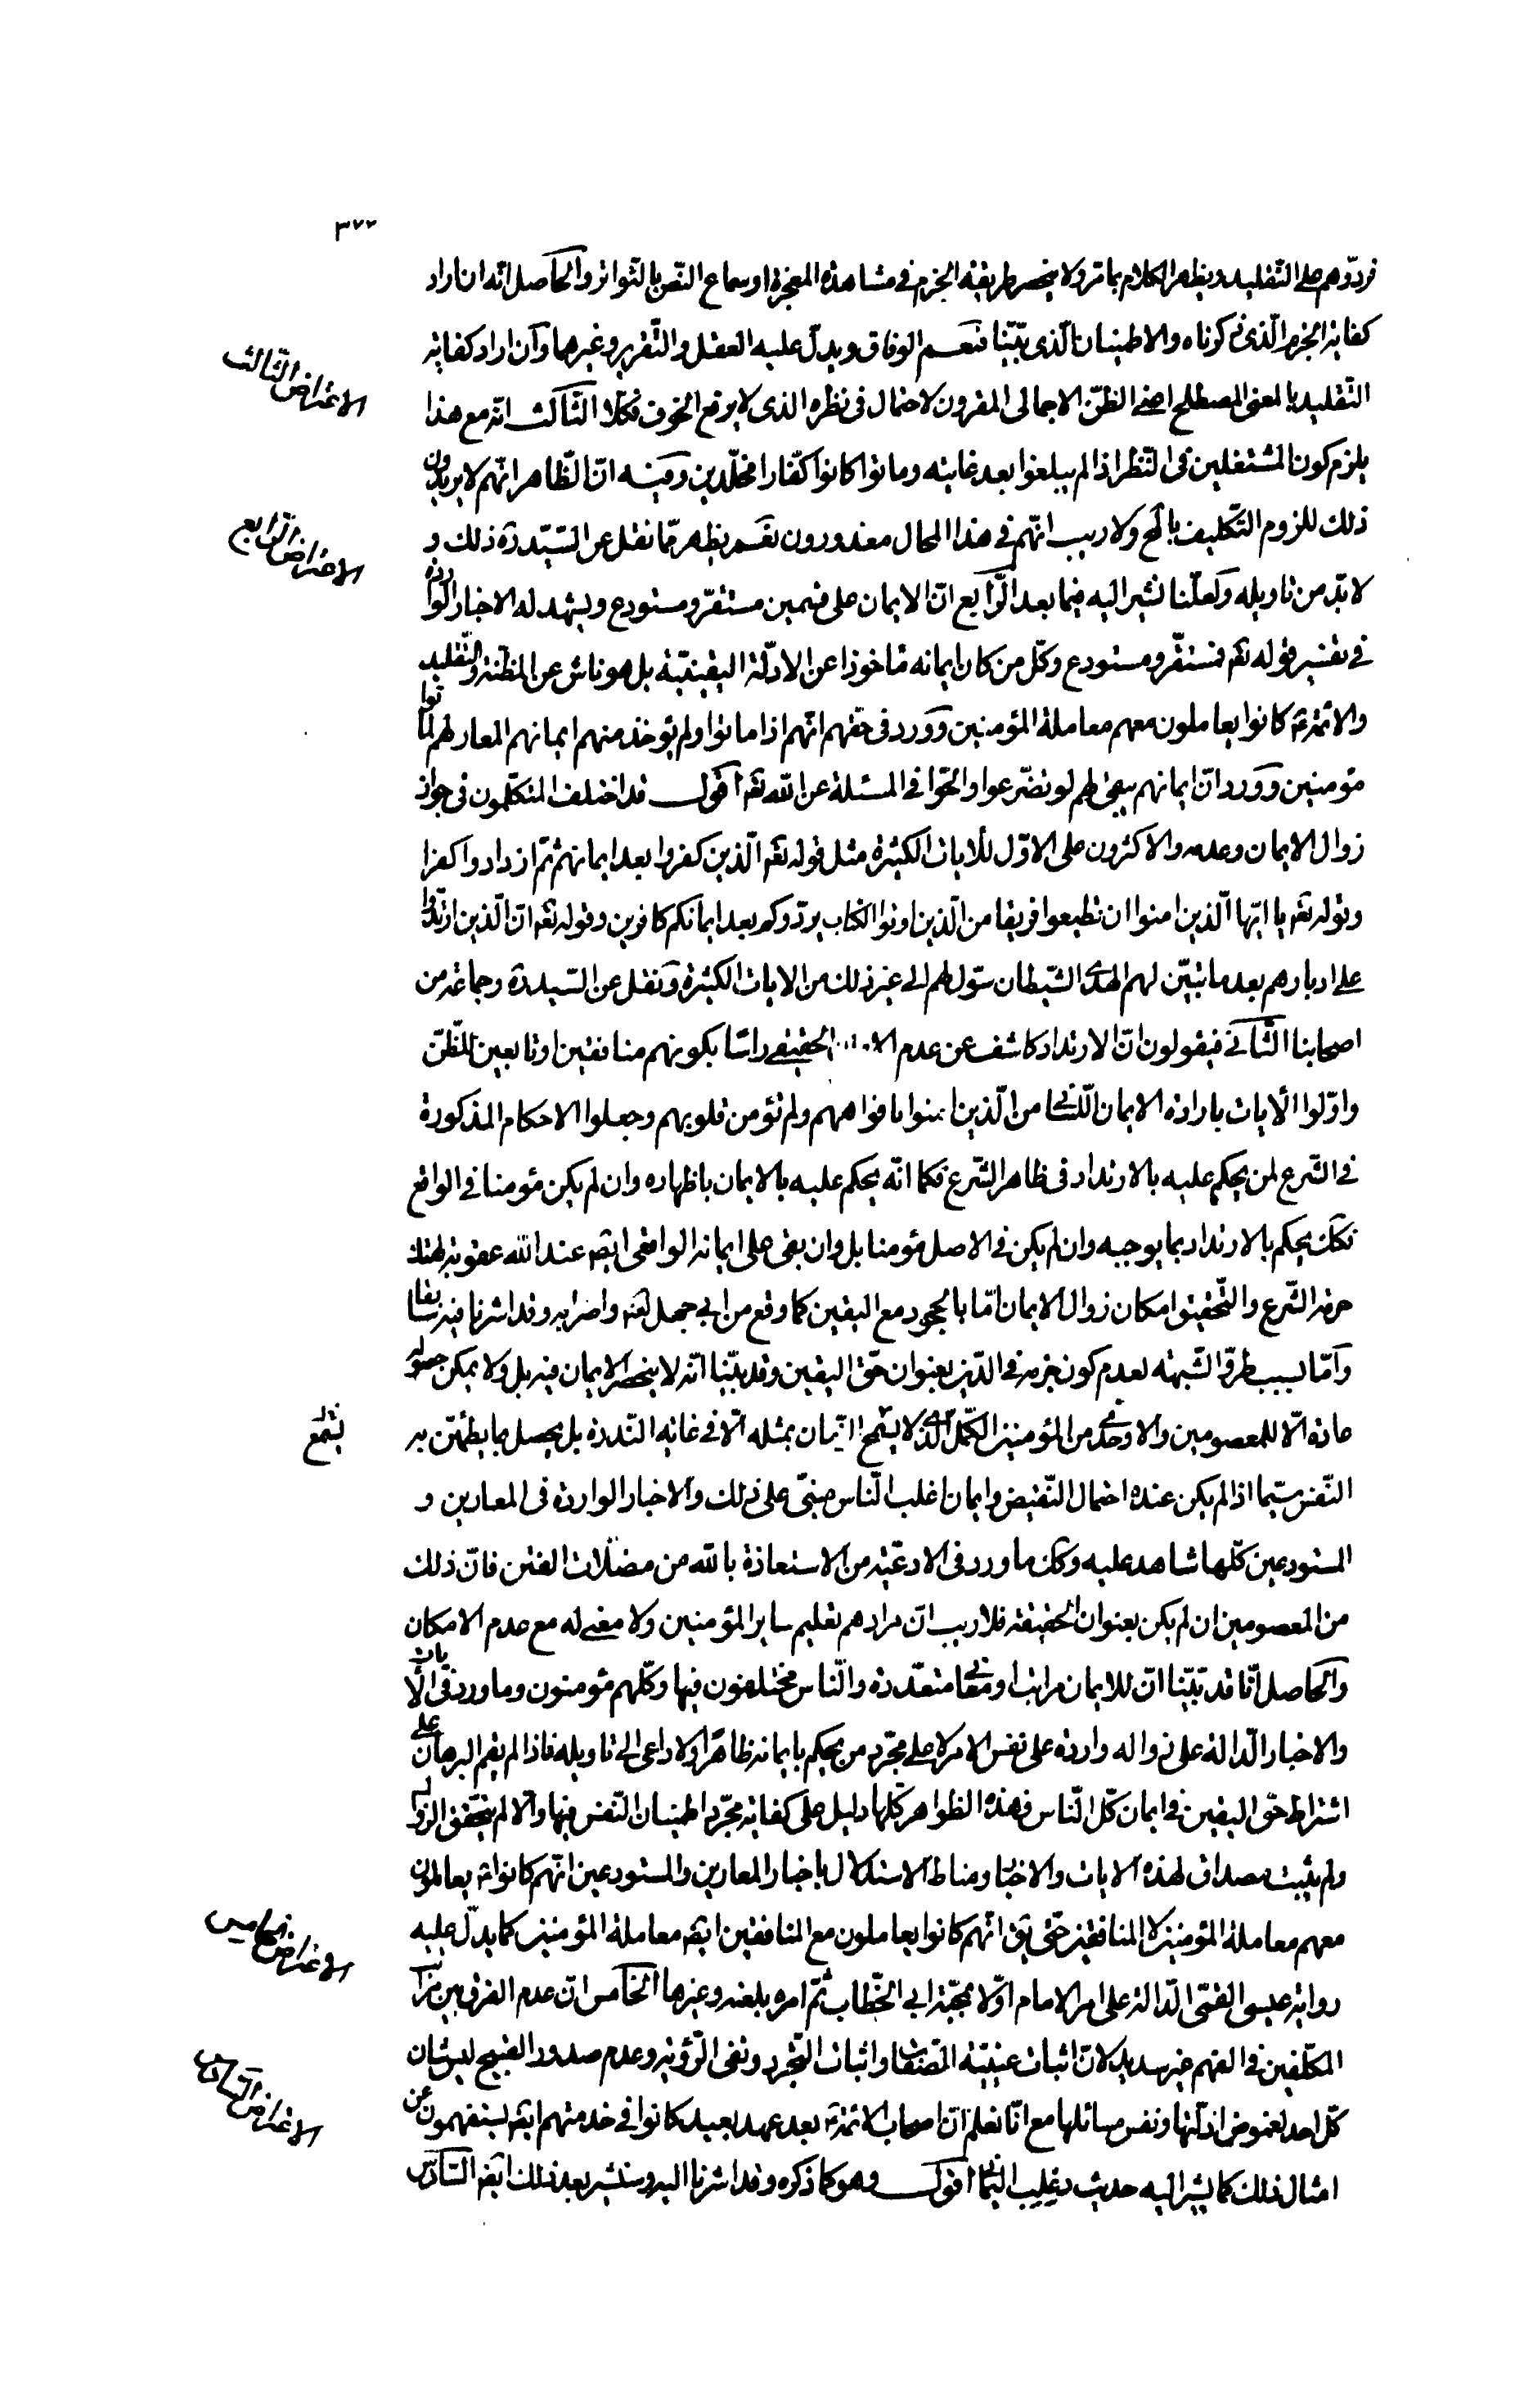 ٣٧٧
فردّوهم على التّقليد ويظهر الكلام بما مرّ ولا ينحصر طريقة الجزم في مشاهدة المعجزة او سماع النّص بالتّواتر والحاصل انّه ان اراد
كفاية الجزم الّذي ذكرناه والاطمينان الّذي بيّنّا فنعم الوفاق ويدلّ عليه العقل والتّقرير وغيرهما وان اراد كفاية
الاعتراض الثالث
التّقليد بالمعنى المصطلح اعنى الظنّ الاجمالى المقرون لاحتمال فى نظره الذى لا يرفع الخوف فكلّا الثّالث انّه مع هذا
يلزم كون المشتغلين فى النّظر اذا لم يبلغوا بعد غايته وماتوا كانوا كفّارا مخلّدين وفيه انّ الظّاهر انّهم لا يريدون
الاعتراض الرّابع
ذلك للزوم التّكليف بالمح ولا ريب انّهم في هذا الحال معذورون نعم يظهر ممّا نقل عن السّيّد ره ذلك و
لا بدّ من تاويله ولعلّنا نشير اليه فيما بعد الرّابع انّ الايمان على قسمين مستقرّ ومستودع ويشهد له الاخبار الواردة
في تفسير قوله تعم فمستقرّ ومستودع وكلّ من كان ايمانه ماخوذا عن الادلّة اليقينيّة بل هو ناش عن المظنّة والتّقليد
والائمّة ع كانوا يعاملون معهم معاملة المؤمنين وورد فى حقّهم انّهم اذا ماتوا ولم يؤخذ منهم ايمانهم المعار لهم ماتوا
مؤمنين وورد انّ ايمانهم يبقى لهم لو تضرّعوا والحّوا فى المسئلة عن اللّه تعم اقول قد اختلف المتكلّمون فى جواز
زوال الايمان وعدمه والاكثرون على الاوّل للأيات الكثيرة مثل قوله تعم الّذين كفروا بعد ايمانهم ثمّ ازدادوا كفرا
وقوله تعم يا ايّها الّذين امنوا ان تطيعوا فريقا من الّذين اوتوا الكتاب يردّوكم بعد ايمانكم كافرين وقوله تعم انّ الّذين ارتدّوا
على ادبارهم بعد ما تبيّن لهم الهدى الشّيطان سوّل لهم الى غير ذلك من الايات الكثيرة ونقل عن السّيد ره وجماعة من
اصحابنا الثّانى فيقولون انّ الارتداد كاشف عن عدم الايمان الحقيقى راسا بكونهم منافقين او تابعين للظّنّ
واوّلوا الأيات بارادة الايمان اللّسانى من الّذين امنوا بافواههم ولم تؤمن قلوبهم وجعلوا الاحكام المذكورة
فى الشّرع لمن يحكم عليه بالارتداد فى ظاهر الشّرع فكما انّه يحكم عليه بالايمان باظهاره وان لم يكن مؤمنا فى الواقع
فكك يحكم بالارتداد بما يوجبه وان لم يكن فى الاصل مؤمنا بل وان بقى على ايمانه الواقعى ايضا عند اللّه عقوبة لهتك
حرمة الشّرع والتّحقيق امكان زوال الايمان امّا بالجحود مع اليقين كما وقع من ابى جهل لعنه واضرابه وقد اشرنا فيه سابقا
وامّا بسبب طروّ الشّبهة لعدم كون جزمه فى الدّين بعنوان حقّ اليقين وقد بيّنّا انّه لا ينحصر الايمان فيه بل ولا يمكن حصوله
عادة الّا للمعصومين والاوحدى من المؤمنين الكمّل الّذى لا يسمح الزّمان بمثله الّا فى غاية النّدرة بل يحصل بما يطمئنّ به
النّفس سيّما اذا لم يكن عنده احتمال النّقيض وايمان اغلب النّاس مبنىّ على ذلك والاخبار الواردة فى المعارين و
المستودعين كلّها شاهد عليه وكك ما ورد فى الادعية من الاستعاذة باللّه من مضلّات الفتن فانّ ذلك
من المعصومين ان لم يكن بعنوان الحقيقة فلا ريب انّ مرادهم تعليم ساير المؤمنين ولا معنى له مع عدم الامكان
والحاصل انّا قد بيّنّا انّ للايمان مراتبا ومعانى متعدّدة والنّاس مختلفون فيها وكلّهم مؤمنون وما ورد فى الأيات
والاخبار الدّالة على زواله واردة على نفس الامر لا على مجرّد من يحكم بايمانه ظاهرا ولا داعى الى تاويله فاذا لم يقم البرهان على
اشتراط حقّ اليقين فى ايمان كلّ النّاس فهذه الظواهر كلّها دليل على كفاية مجرّد اطمينان النّفس فيها والّا لم يتحقّق الزوال
ولم يثبت مصداق لهذه الايات والاخبار ومناط الاستدلال باخبار المعارين والمستودعين انّهم كانوا ع يعاملون
معهم معاملة المؤمنين لا المنافقين حتّى يق انّهم كانوا يعاملون مع المنافقين ايضا معاملة المؤمنين كما يدلّ عليه
الاعتراض الخامس
رواية عيسى القمّى الدّالة على امر الامام اوّلا بمحبّة ابى الخطّاب ثمّ امره بلعنه وغيرها الخامس انّ عدم الفرق بين
المكلّفين فى الفهم غير سديد لانّ اثبات عينيّة الصّفات واثبات التّجرّد ونفى الرّؤية وعدم صدور القبيح ليس شان
الاعتراض السّادس
كلّ احد لغموض ادلّتها ونفس مسائلها مع انّا نعلم انّ اصحاب الائمّة ع بعد عهد بعيد كانوا فى خدمتهم ايضا يستفهمون عن
امثال ذلك كما يشير اليه حديث ذعلب اليمانى اقول وهو كما ذكره وقد اشرنا اليه وسنشير بعد ذلك ايضا السّادس